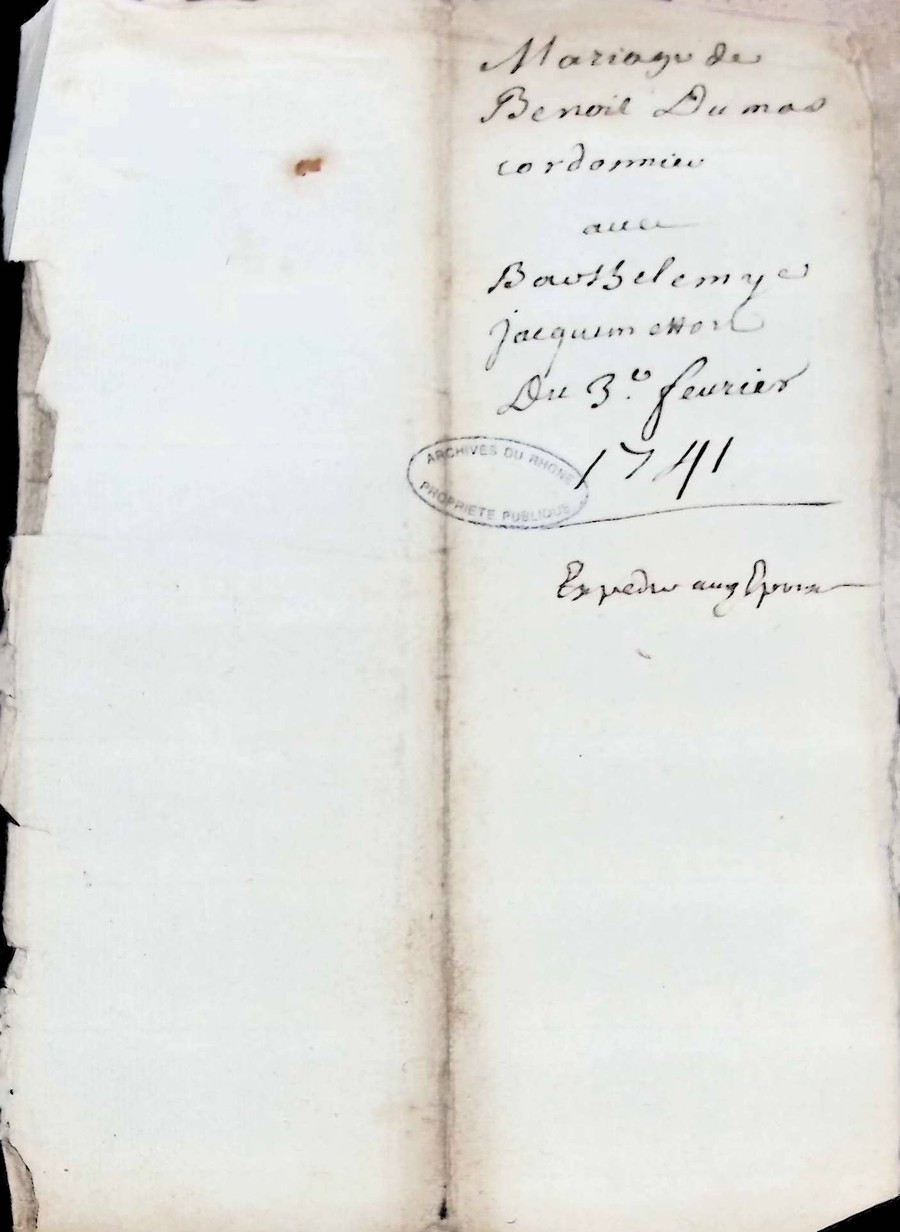 Mariage de
Benoit Dumas
cordonnier
avec
Barthelemye
jacquemetton
Du 3.e feurier
1741
ARCHIVES DU RHONE
PROPRIETE PUBLIQUE
Expedie aux Epoux